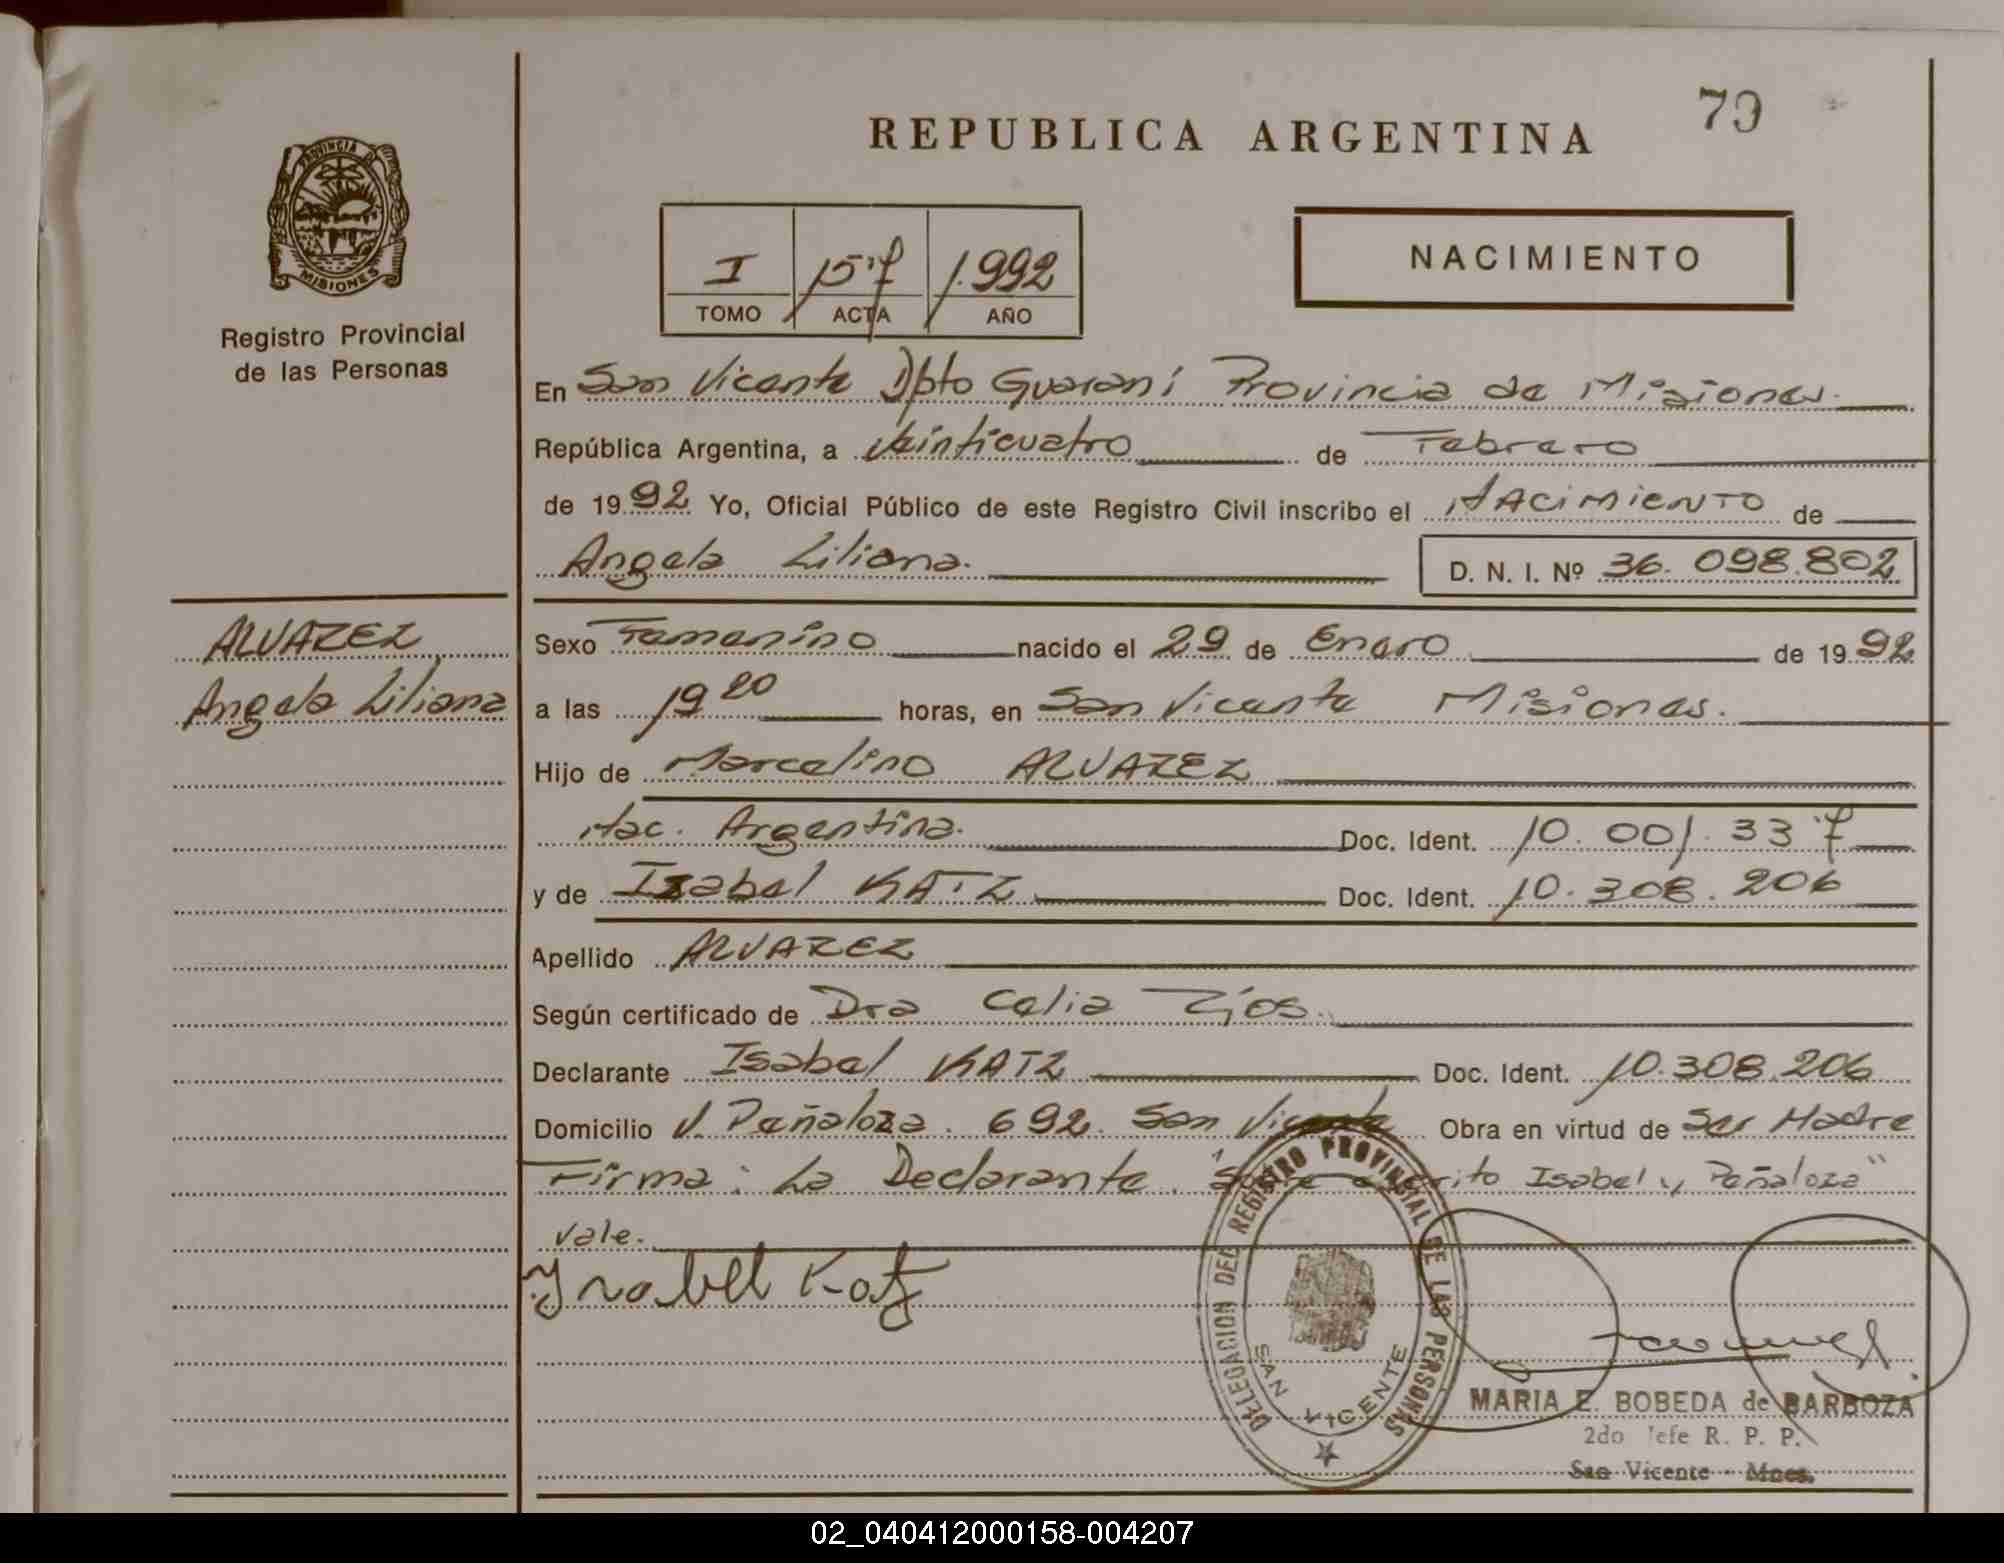 79
REPUBLICA ARGENTINA
PROVINCIA D
MISIONES
Registro Provincial
de las Personas
I 157 1.992
TOMO ACTA AÑO
NACIMIENTO
En San Vicente Dpto Guaraní Provincia de Misiones.
República Argentina, a Veinticuatro de Febrero
de 1992 Yo, Oficial Público de este Registro Civil inscribo el Nacimiento de
Angela Liliana. D. N. I. Nº 36.098.802
ALVAREZ
Angela Liliana
Sexo Femenino nacido el 29 de Enero de 1992
a las 19 20 horas, en San Vicente Misiones.
Hijo de Marcelino ALVAREZ
Nac. Argentina. Doc. Ident. 10.001.337
y de Isabel KATZ Doc. Ident. 10.308.206
Apellido ALVAREZ
Según certificado de Dra Celia
Declarante Isabel KATZ Doc. Ident. 10.308.206
Domicilio V. Peñaloza. 692. San Vicente Obra en virtud de Ser Madre
Firma: La Declarante. "Sobre Isabel y Peñaloza"
Vale.
Ysabel Katz
DELEGACION DEL REGISTRO PROVINCIAL DE LAS PERSONAS
SAN VICENTE
MARIA E. BOBEDA de BARBOZA
2do Jefe R. P. P.
San Vicente - Mnes.
02_040412000158-004207